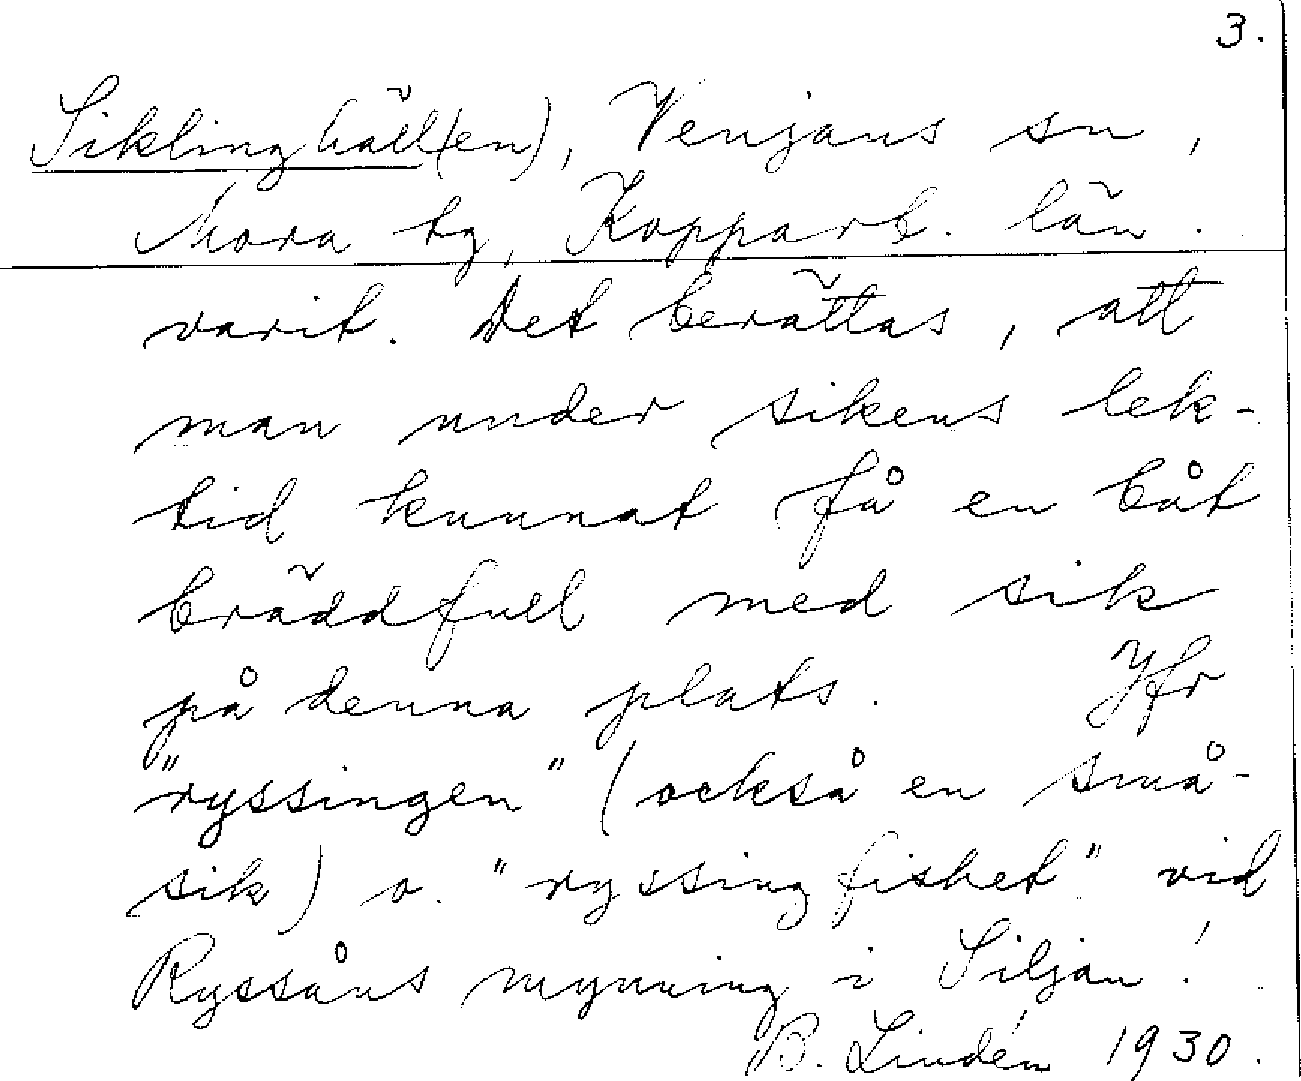 3.
Siklinghäll(en), Venjans sn,
Mora tg, Kopparb. län.
varit. Det berättas, att
man under sikens lek-
tid kunnat få en båt
bräddfull med sik
på denna plats. Jfr
"ryssingen" (också en små-
sik) o. "ryssingfisket" vid
Ryssåns mynning i Siljan!
B. Lindén 1930.